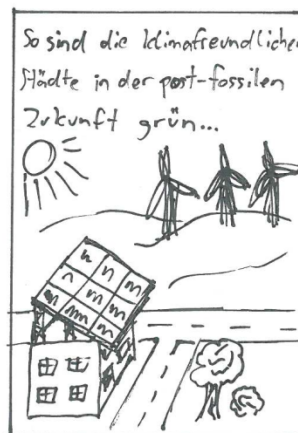 So sind die klimafreundlichen
Städte in der post-fossilen
Zukunft grün...